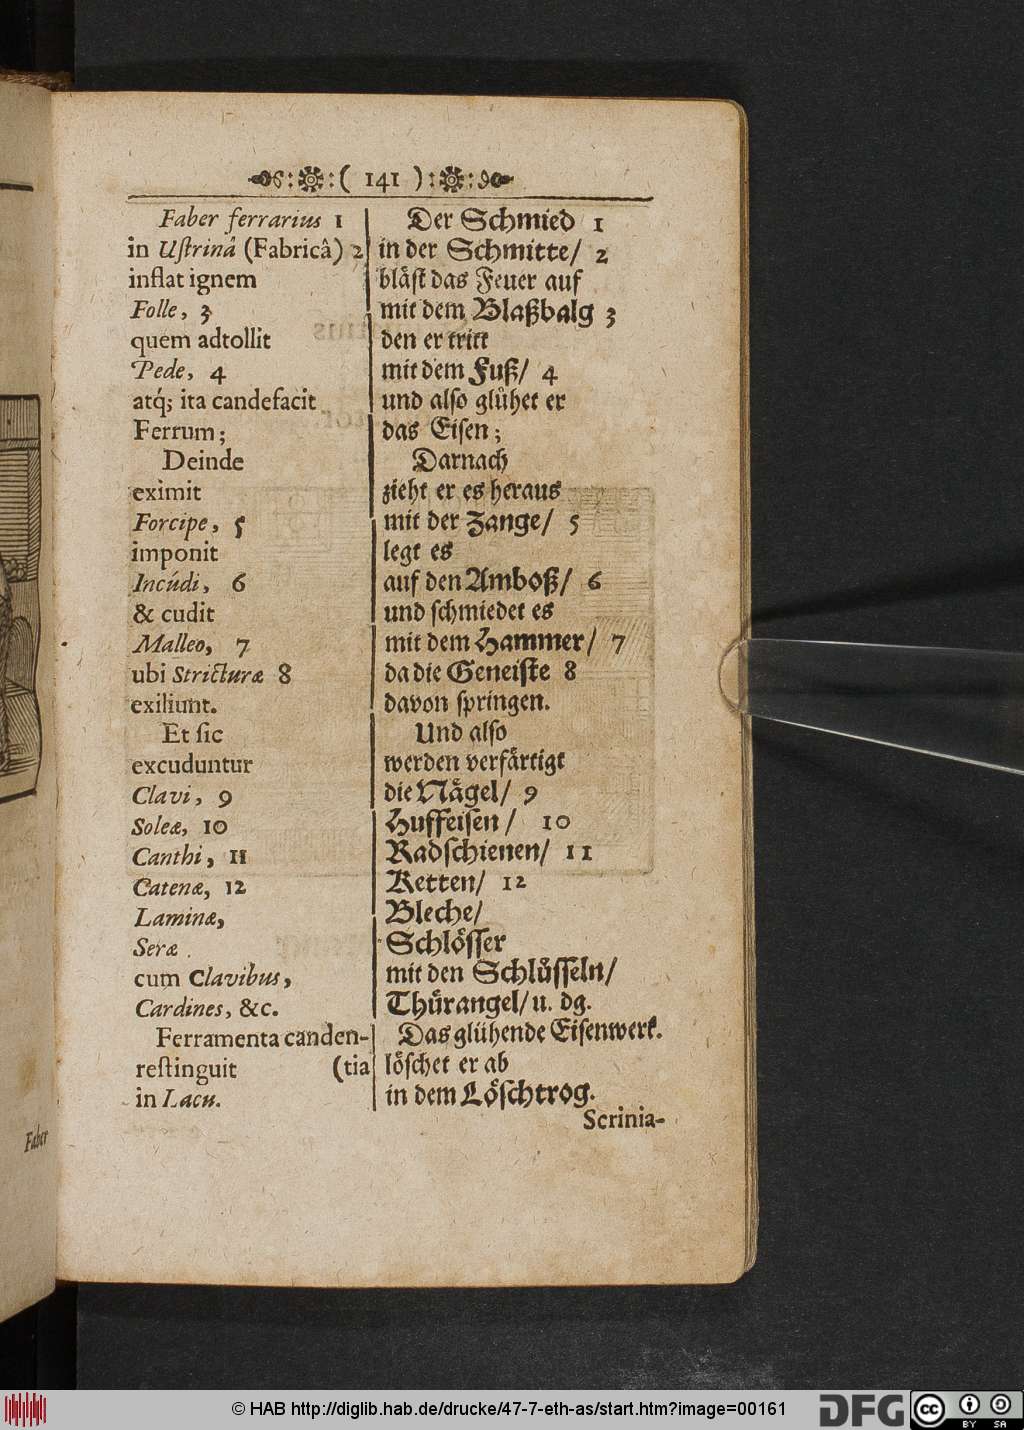 ( 141 )
Faber ferrarius 1
in Uſtrinâ (Fabricâ) 2
inflat ignem
Folle, 3
quem adtollit
Pede, 4
atq́; ita candefacit
Ferrum;
Deinde
eximit
Forcipe, 5
imponit
Incúdi, 6
& cudit
Malleo, 7
ubi Stricturæ 8
exiliunt.
Et ſic
excuduntur
Clavi, 9
Soleæ, 10
Canthi, 11
Catenæ, 12
Laminæ,
Seræ
cum Clavibus,
Cardines, &c.
Ferramenta canden-
reſtinguit (tia
in Lacu.
Der Schmied 1
in der Schmitte/ 2
bläſt das Feuer auf
mit dem Blaßbalg 3
den er tritt
mit dem Fuß/ 4
und alſo glühet er
das Eiſen;
Darnach
zieht er es heraus
mit der Zange/ 5
legt es
auf den Amboß/ 6
und ſchmiedet es
mit dem Hammer/ 7
da die Geneiſte 8
davon ſpringen.
Und alſo
werden verfärtigt
die Nägel/ 9
Huffeiſen/ 10
Radſchienen/ 11
Ketten/ 12
Bleche/
Schlöſſer
mit den Schlüſſeln/
Thürangel/ u. dg.
Das glühende Eiſenwerk.
löſchet er ab
in dem Löſchtrog.
Scrinia-
Faber
© HAB http://diglib.hab.de/drucke/47-7-eth-as/start.htm?image=00161
DFG
cc
BY SA